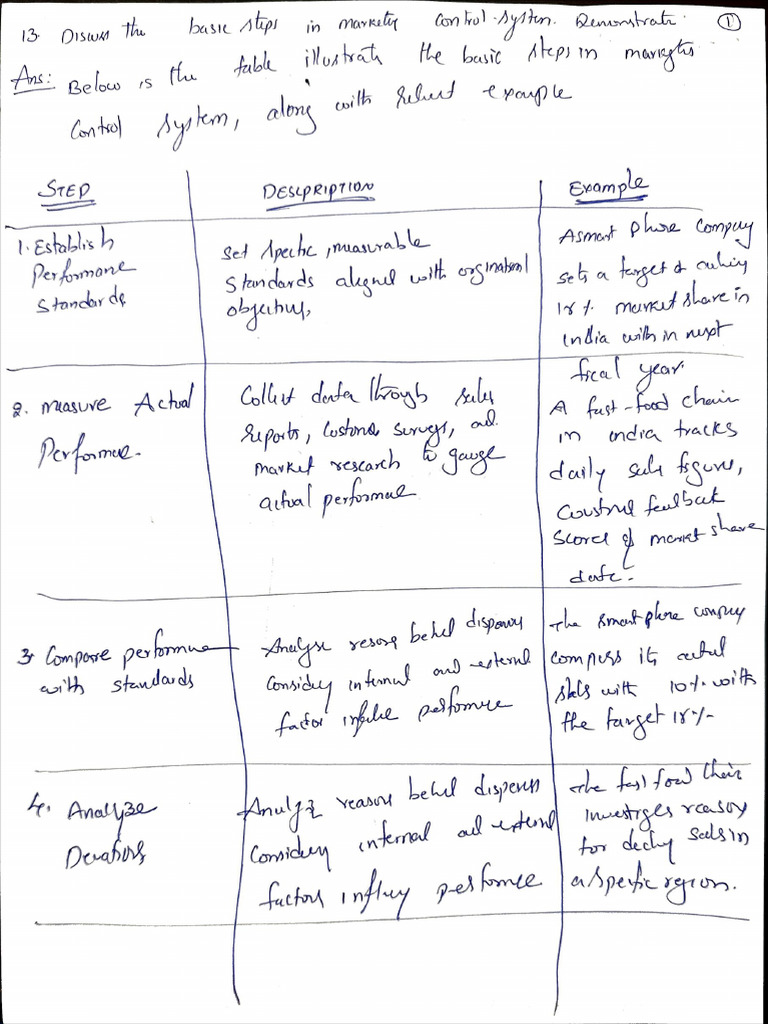 13. Discuss the basic steps in marketing control system. Demonstrate. ①
Ans: Below is the table illustrate the basic steps in
control system, along with example
STEP
DESCRIPTION
Example
1. Establish
Performance
Standards
Set specific, measurable
standards aligned with
objectives,
A smart phone company
sets a target of
18% market share in
India with in next
fiscal year.
2. measure Actual
Performance.
Collect data through sales
reports, customer surveys, and
market research to gauge
actual performance
A fast-food chain
in india tracks
daily sales figures,
customer feedback
scores & market share
date.
3. Compare performance
with standards
Analyse reasons behind
considering internal and external
factor performance
The smart phone company
its actual
with 10% with
the target 18%
4. Analyze
Deviations
Analyze reasons behind
considering internal and external
factors performance
The fast food chain
reasons
for sales in
a specific region.